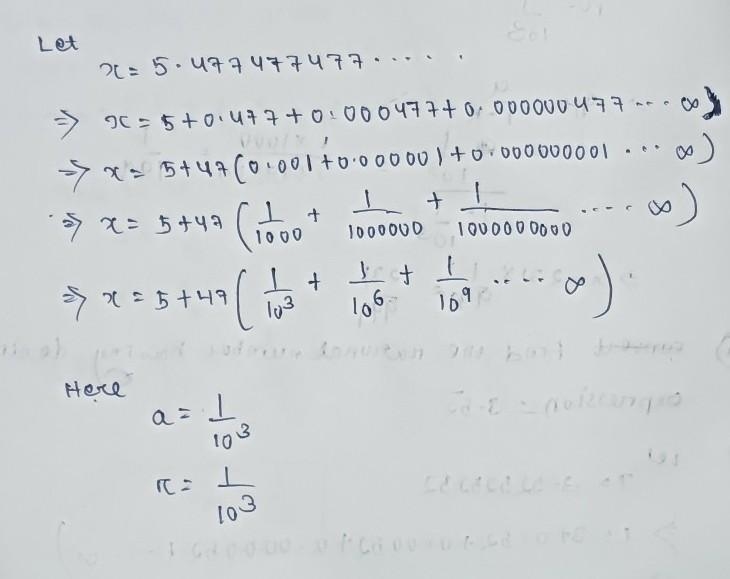 Let
x = 5.477477477.....
⇒ x = 5+0.477+0.000477+0.000000477... ∞)
⇒ x = 5+47(0.001+0.000001+0.000000001... ∞)
⇒ x = 5+47(1/1000 + 1/1000000 + 1/1000000000 .... ∞)
⇒ x = 5+47(1/10³ + 1/10⁶ + 1/10⁹ .... ∞)
Here
a = 1/10³
r = 1/10³